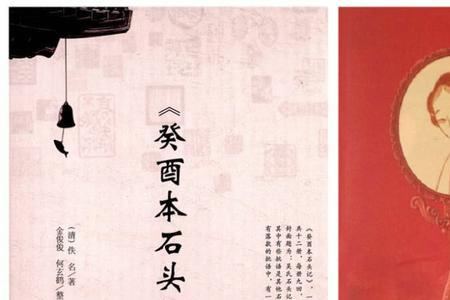 《癸酉本石头
（清）佚　名／著
金俊俊　何玄鹤／整
《癸酉本石头记》，
共十二册，每册九回，
封面题为：吴氏石头记
其中有些批语是其他石
有落款的批语中，有一